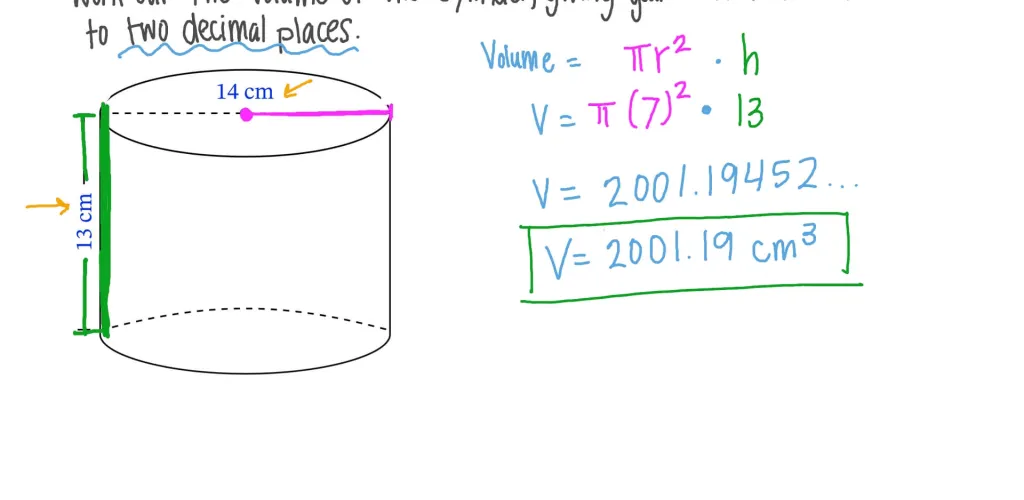 to two decimal places.
14 cm
13 cm
Volume = πr² · h
V = π(7)² · 13
V = 2001.19452...
V = 2001.19 cm³